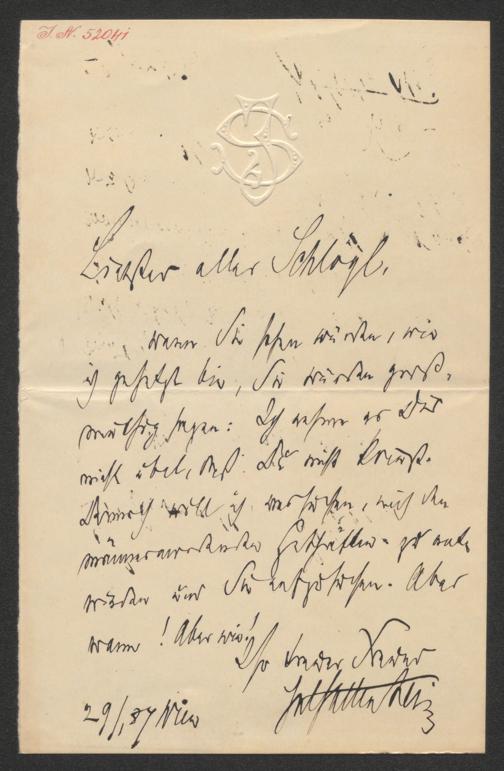 I. N. 52041
Liebster aller Schlögl,
wenn Sie sehen würden, wie
ich gehetzt bin, Sie würden groß-
müthig sagen: Ich nehme es Dir
nicht übel, daß Du nicht kommst.
Dennoch will ich versuchen, mich den
männermordenden Geschäften zu ent-
winden und Sie aufzusuchen. Aber
wann! Aber wie!
Ihr treuer
29/1 87 Wien